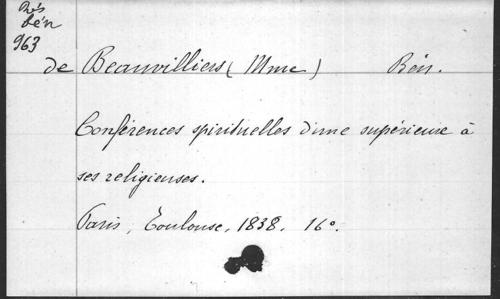 Rés
bén
963
de Beauvilliers (Mme) Bén.
Conférences spirituelles d'une supérieure à
ses religieuses.
Paris, Toulouse, 1838. 16°.